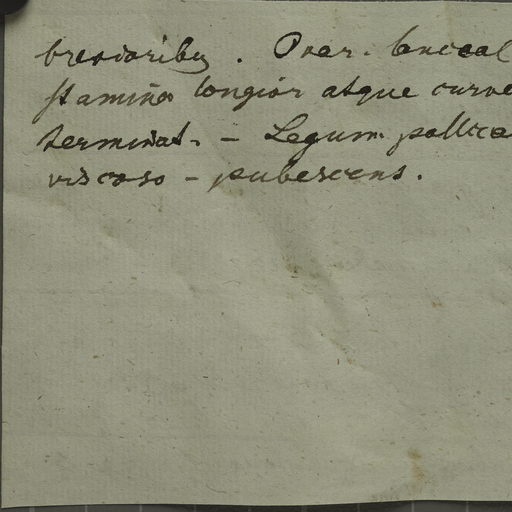 brevioribus. Ovar. lanceol
stamina longior atque curv
terminat. - Legum. pollica
viscoso - pubescens.